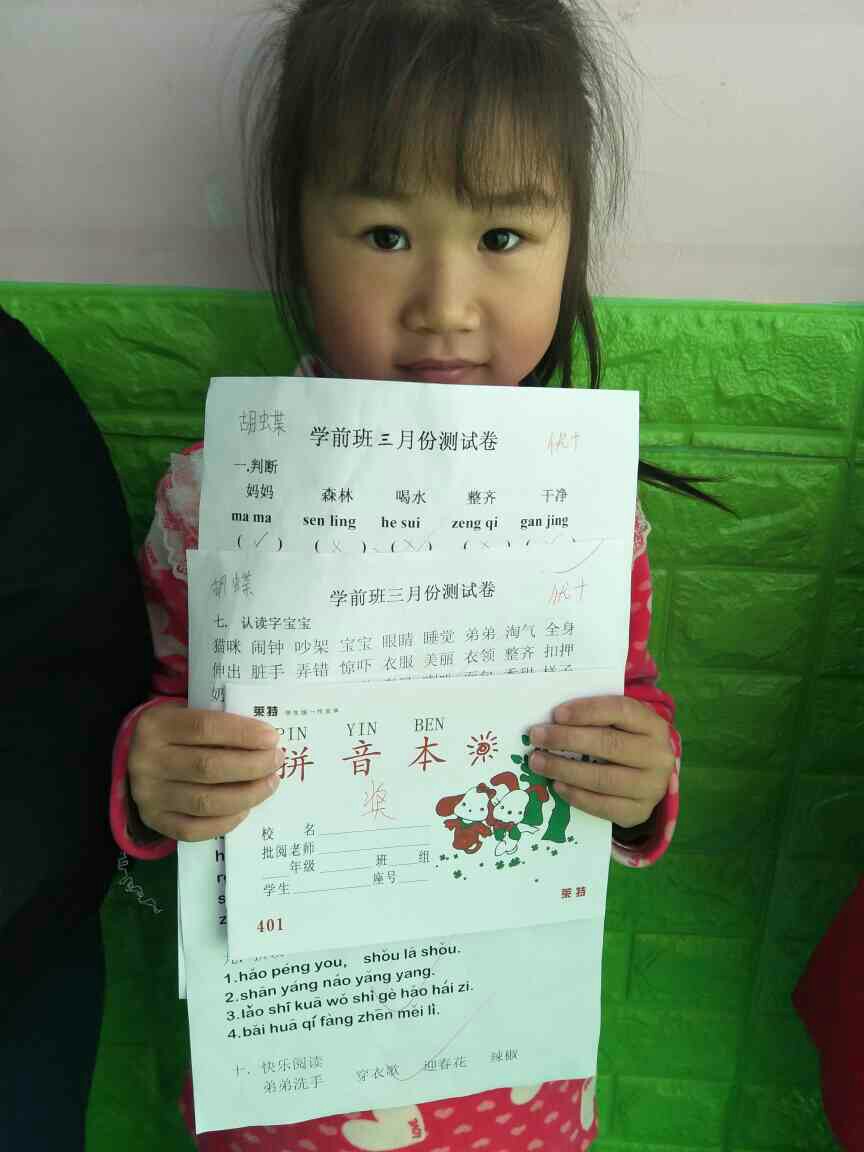 胡蝶
学前班三月份测试卷
优+
一.判断
妈妈 森林 喝水 整齐 干净
ma ma sen ling he sui zeng qi gan jing
胡蝶
学前班三月份测试卷
优+
七. 认读字宝宝
猫咪 闹钟 吵架 宝宝 眼睛 睡觉 弟弟 淘气 全身
伸出 脏手 弄错 惊吓 衣服 美丽 衣领 整齐 扣押
莱特
PIN YIN BEN
拼音本
奖
校 名
批阅老师
年级 班 组
学生 座号
莱特
401
1.hǎo péng you, shǒu lā shǒu.
2.shān yáng náo yǎng yang.
3.lǎo shī kuā wǒ shì gè hǎo hái zi.
4.bǎi huā qí fàng zhēn měi lì.
十. 快乐阅读
弟弟洗手 穿衣歌 迎春花 辣椒